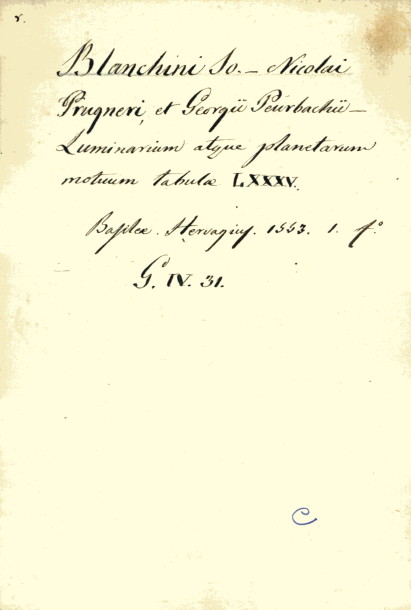 r.
Blanchini Io. – Nicolai
Prugneri, et Georgii Peurbachii –
Luminarium atque planetarum
motuum tabulæ LXXXV.
Basileæ. Hervagius. 1553. 1. f.º
G. IV. 31.
C